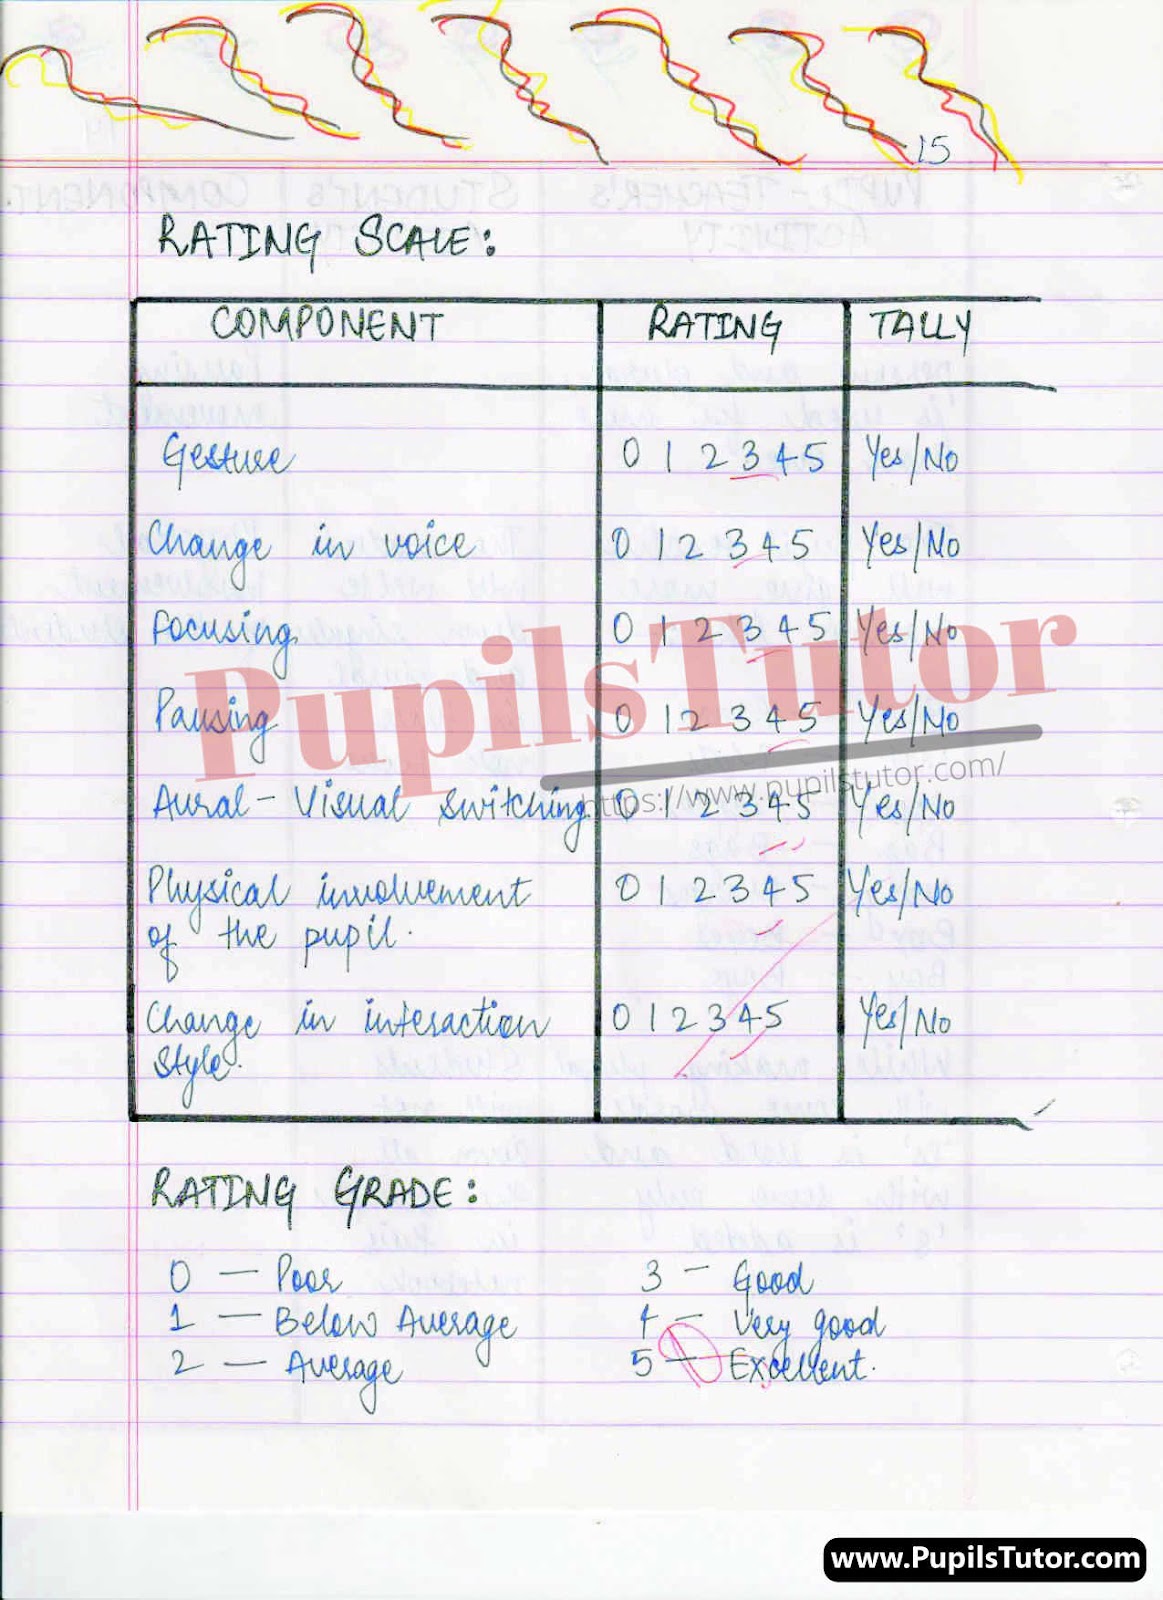 15
RATING SCALE:
COMPONENT RATING TALLY
Gesture 0 1 2 3 4 5 Yes/No
Change in voice 0 1 2 3 4 5 Yes/No
Focusing 0 1 2 3 4 5 Yes/No
PupilsTutor
Pausing 0 1 2 3 4 5 Yes/No
https://www.pupilstutor.com/
Aural-Visual switching. 0 1 2 3 4 5 Yes/No
Physical involvement 0 1 2 3 4 5 Yes/No
of the pupil.
Change in interaction 0 1 2 3 4 5 Yes/No
style.
RATING GRADE:
0 — Poor 3 — Good
1 — Below Average 4 — Very good
2 — Average 5 — Excellent.
www.PupilsTutor.com